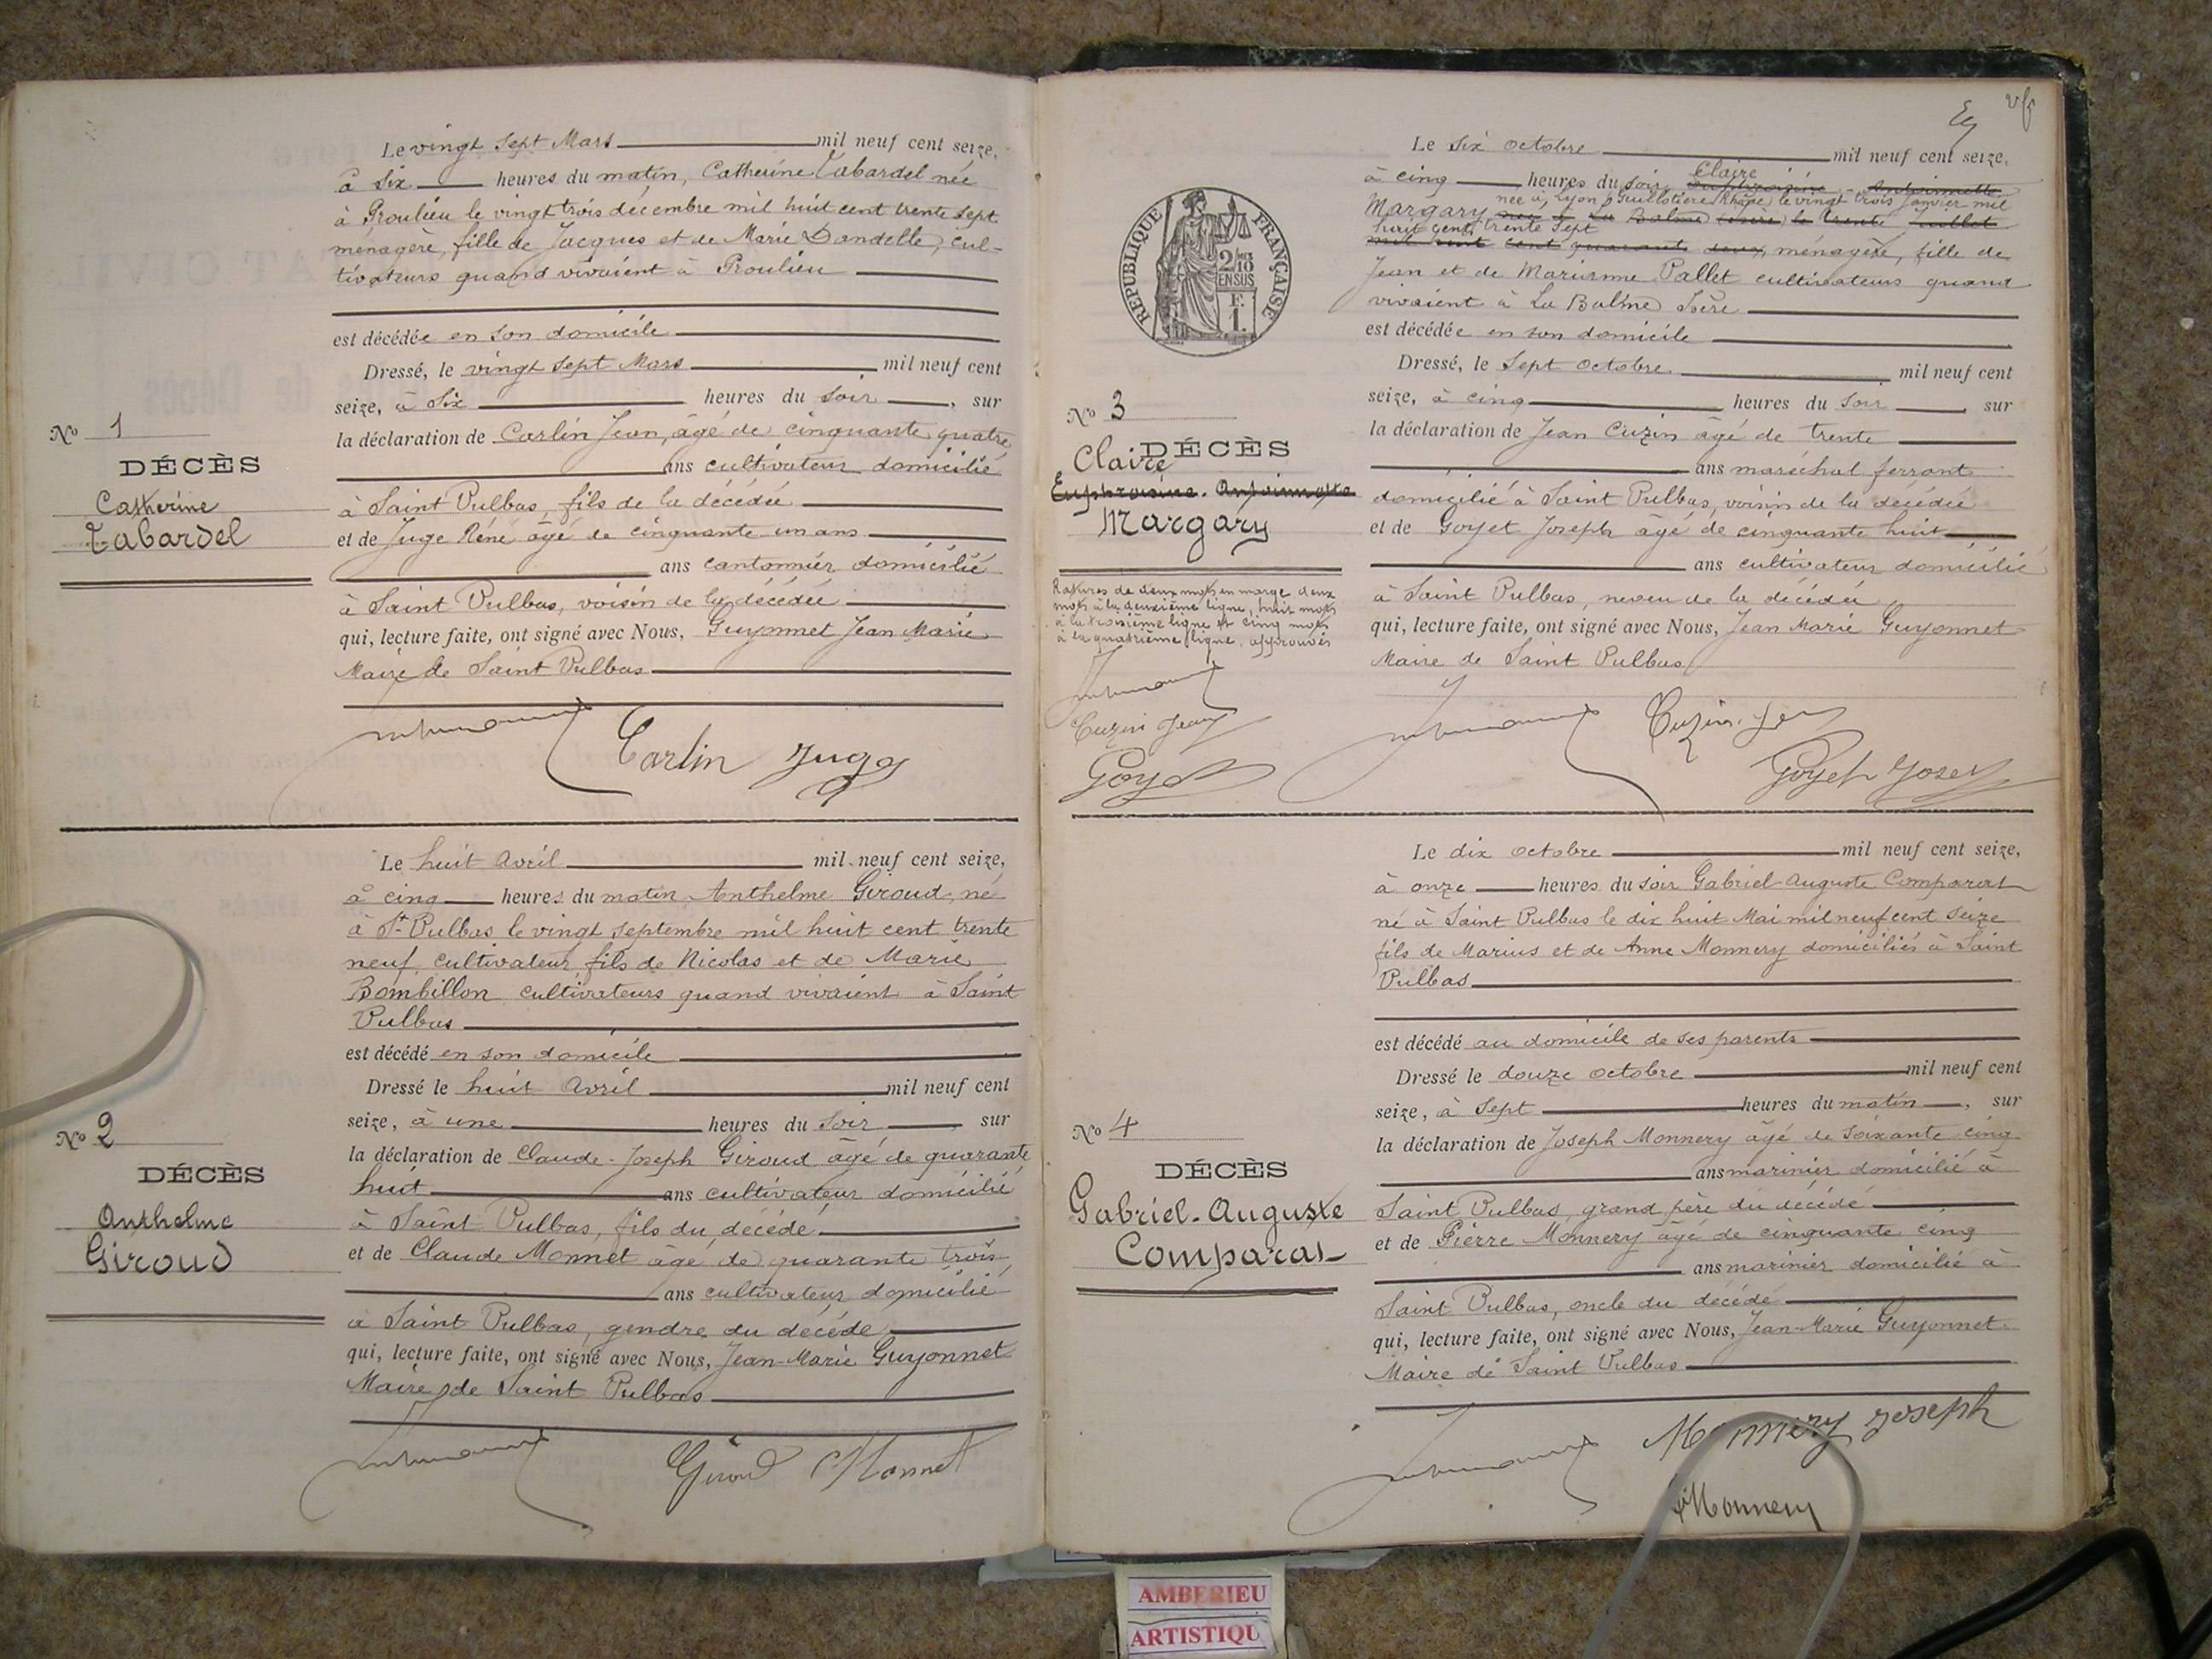 Le vingt sept Mars mil neuf cent seize,
à six heures du matin, Catherine Tabardel née
à Proulieu le vingt trois décembre mil huit cent trente sept
ménagère, fille de Jacques et de Marie Dandelle, cul-
tivateurs quand vivaient à Proulieu
est décédée en son domicile
Dressé, le vingt sept Mars mil neuf cent
seize, à six heures du soir, sur
la déclaration de Carlin Jean, âgé de cinquante quatre
ans cultivateur domicilié
à Saint Vulbas, fils de la décédée
et de Juge Réné âgé de cinquante un ans
ans cantonnier domicilié
à Saint Vulbas, voisin de la décédée
qui, lecture faite, ont signé avec Nous, Guyonnet Jean Marie
Maire de Saint Vulbas
Carlin Juge
No 1
DÉCÈS
Catherine
Tabardel
Le huit Avril mil neuf cent seize,
à cinq heures du matin Anthelme Giroud, né
à St Vulbas le vingt septembre mil huit cent trente
neuf, cultivateur, fils de Nicolas et de Marie
Bombillon cultivateurs quand vivaient à Saint
Vulbas
est décédé en son domicile
Dressé le huit Avril mil neuf cent
seize, à une heures du soir, sur
la déclaration de Claude-Joseph Giroud âgé de quarante
huit ans cultivateur domicilié
à Saint Vulbas, fils du décédé
et de Claude Monnet âgé de quarante trois
ans cultivateur domicilié
à Saint Vulbas, gendre du décédé
qui, lecture faite, ont signé avec Nous, Jean-Marie Guyonnet
Maire de Saint Vulbas
Giroud Monnet
No 2
DÉCÈS
Anthelme
Giroud
RÉPUBLIQUE FRANÇAISE
2/10
EN SUS
F.
1.
Le six octobre mil neuf cent seize,
Claire
à cinq heures du soir, Euphroisine Antoinnette
née à Lyon Guillotière (Rhône) le vingt trois Janvier mil
Margary, née à La Balme (Isère) le trente Juillet
huit cent trente sept
mil huit cent quarante deux, ménagère, fille de
Jean et de Marianne Pallet cultivateurs quand
vivaient à La Balme Isère
est décédée en son domicile
Dressé, le sept octobre mil neuf cent
seize, à cinq heures du soir, sur
la déclaration de Jean Cuzin âgé de trente
ans maréchal ferrant
domicilié à Saint Vulbas, voisin de la décédée
et de Goyet Joseph âgé de cinquante huit
ans cultivateur domicilié
à Saint Vulbas, neveu de la décédée
qui, lecture faite, ont signé avec Nous, Jean Marie Guyonnet
Maire de Saint Vulbas
Cuzin Jean
Goyet Joseph
No 3
DÉCÈS
Claire
Euphroisine. Antoinnette
Margary
Ratures de deux mots en marge deux
mots à la deuxième ligne, huit mots
à la troisième ligne et cinq mots
à la quatrième ligne. approuvés
Cuzin Jean
Goyet
Le dix octobre mil neuf cent seize,
à onze heures du soir Gabriel-Auguste Comparat
né à Saint Vulbas le dix huit Mai mil neuf cent seize
fils de Marius et de Anne Monnery domiciliés à Saint
Vulbas
est décédé au domicile de ses parents
Dressé le douze octobre mil neuf cent
seize, à sept heures du matin, sur
la déclaration de Joseph Monnery âgé de soixante cinq
ans marinier domicilié à
Saint Vulbas, grand père du décédé
et de Pierre Monnery âgé de cinquante cinq
ans marinier domicilié à
Saint Vulbas, oncle du décédé
qui, lecture faite, ont signé avec Nous, Jean-Marie Guyonnet
Maire de Saint Vulbas
Monnery Joseph
Monnery
No 4
DÉCÈS
Gabriel-Auguste
Comparat
AMBERIEU
ARTISTIQU